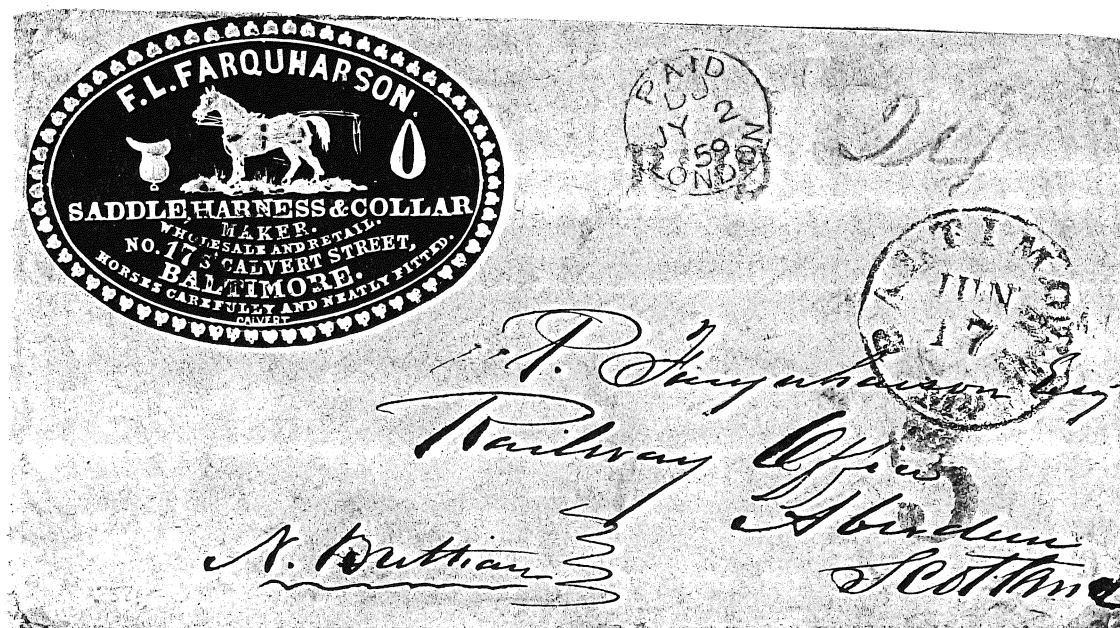 F. L. FARQUHARSON
SADDLE, HARNESS & COLLAR
MAKER.
WHOLESALE AND RETAIL.
NO. 17 S. CALVERT STREET,
BALTIMORE.
HORSES CAREFULLY AND NEATLY FITTED.
CALVERT
PAID
JY 2
59
LONDON
BALTIMORE
JUN
17
P. Farquharson Esq
Railway Office
Aberdeen
Scotland
N. Brittian